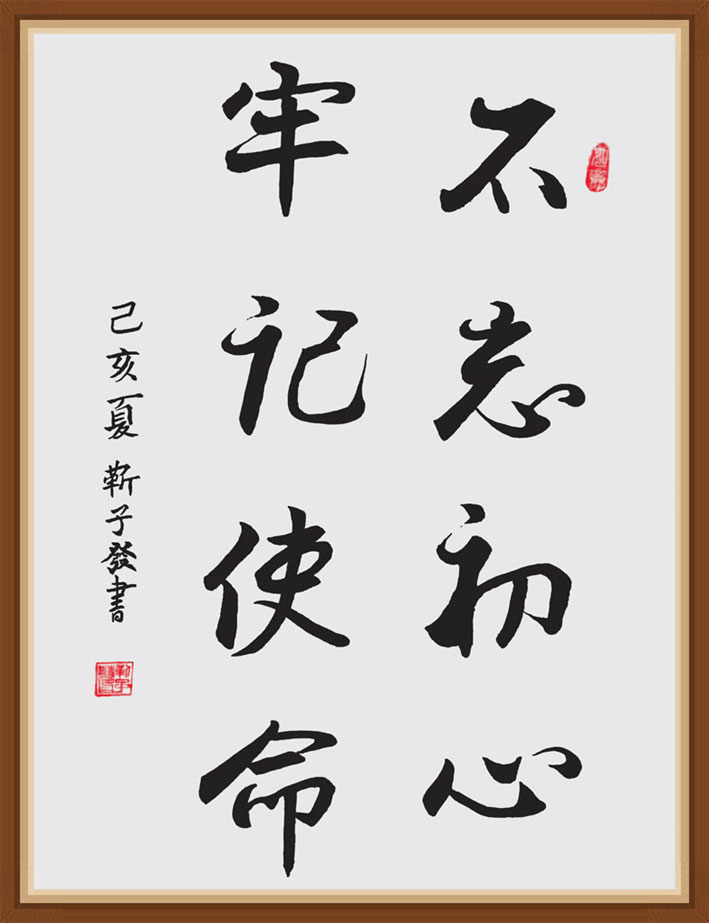 不忘初心
牢记使命
己亥夏 靳子發書